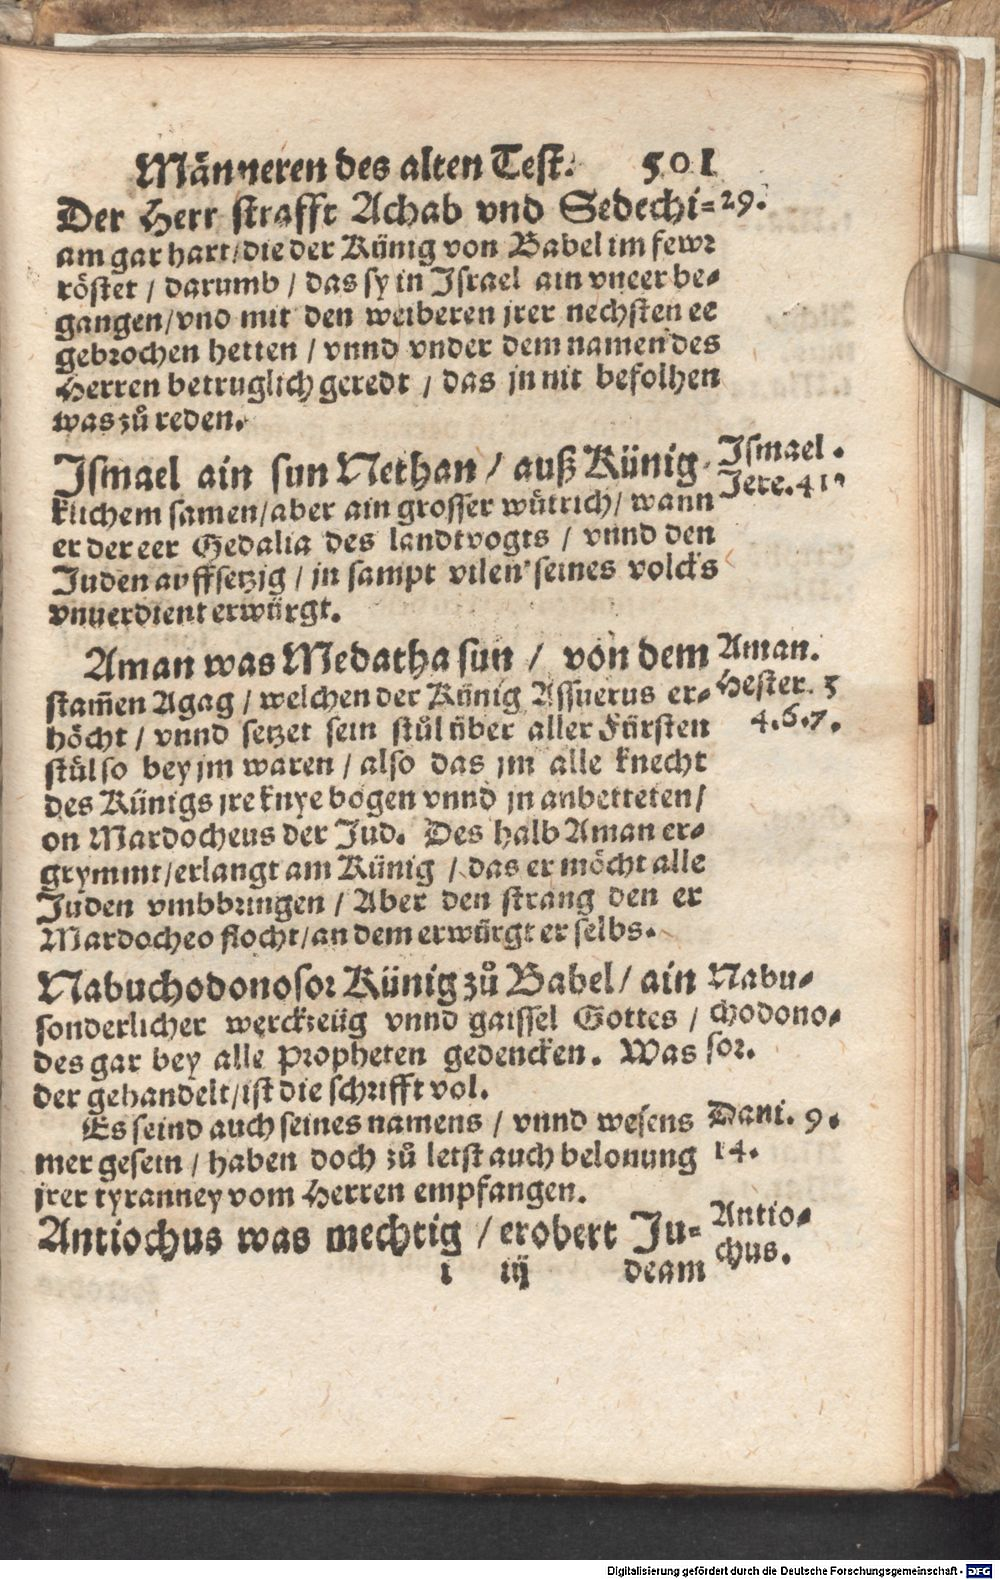 Männeren des alten Test. 501
Der Herr strafft Achab vnd Sedechi= 29.
am gar hart/die der Künig von Babel im fewr
röstet / darumb / das sy in Israel ain vneer be-
gangen/vnd mit den weiberen jrer nechsten ee
gebrochen hetten / vnnd vnder dem namen des
Herren betruglich geredt / das jn nit befolhen
was zů reden.
Ismael ain sun Nethan / auß Künig- Ismael.
klichem samen/aber ain grosser wütrich/ wann Jere.41
er der eer Gedalia des landtvogts / vnnd den
Juden auffsetzig / jn sampt vilen seines volcks
vnuerdient erwürgt.
Aman was Medatha sun / von dem Aman.
stam̃en Agag / welchen der Künig Assuerus er- Hester. 3
höcht / vnnd setzet sein stůl über aller Fürsten 4.6.7.
stůl so bey jm waren / also das jm alle knecht
des Künigs jre knye bogen vnnd jn anbetteten/
on Mardocheus der Jud. Des halb Aman er-
grymmt/erlangt am Künig / das er möcht alle
Juden vmbbringen / Aber den strang den er
Mardocheo flocht/an dem erwürgt er selbs.
Nabuchodonosor Künig zů Babel/ ain Nabu-
sonderlicher werckzeüg vnnd gaissel Gottes / chodono-
des gar bey alle Propheten gedencken. Was sor.
der gehandelt/ist die schrifft vol.
Es seind auch seines namens / vnnd wesens Dani. 9.
mer gesein / haben doch zů letst auch belonung 14.
jrer tyranney vom Herren empfangen.
Antiochus was mechtig / erobert Ju- Antio-
chus.
i iij deam
Digitalisierung gefördert durch die Deutsche Forschungsgemeinschaft - DFG